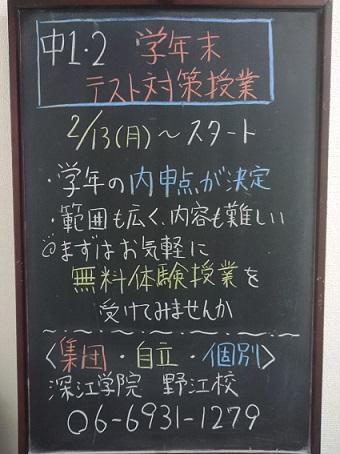 中1・2 学年末
テスト対策授業
2/13(月)～スタート
・学年の内申点が決定
・範囲も広く、内容も難しい
@まずはお気軽に
無料体験授業を
受けてみませんか
〈集団・自立・個別〉
深江学院 野江校
06-6931-1279